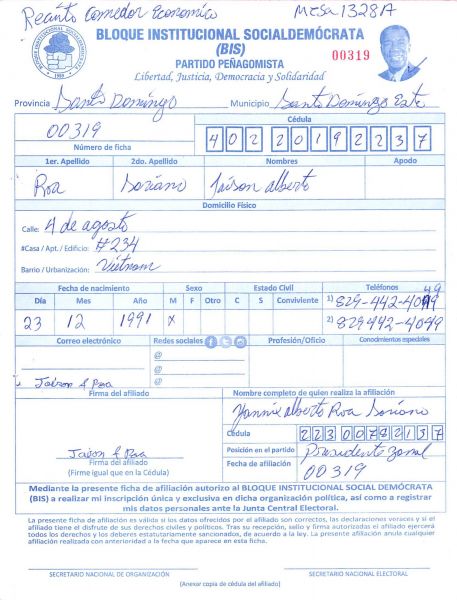 Recinto Comedor Economico Mesa 1328A
BLOQUE INSTITUCIONAL SOCIALDEMÓCRATA
(BIS)
00319
PARTIDO PEÑAGOMISTA
Libertad, Justicia, Democracia y Solidaridad
Provincia Santo Domingo Municipio Santo Domingo Este
00319
Número de ficha
Cédula
40220192237
1er. Apellido 2do. Apellido Nombres Apodo
Roa Soriano Jaison Alberto
Domicilio Físico
Calle: 4 de agosto
#Casa / Apt. / Edificio: #234
Barrio / Urbanización: Vietnam
Fecha de nacimiento Sexo Estado Civil Teléfonos
Día Mes Año M F Otro C S Conviviente
23 12 1991 X
1) 829-442-4049
2) 829442-4049
Correo electrónico Redes sociales Profesión/Oficio Conocimientos especiales
@
@
@
Jaison A Roa
Firma del afiliado Nombre completo de quien realiza la afiliación
Yannix Alberto Roa Soriano
Cédula 22300742137
Posición en el partido Presidente zonal
Fecha de afiliación 00319
Jaison A Roa
Firma del afiliado
(Firme igual que en la Cédula)
Mediante la presente ficha de afiliación autorizo al BLOQUE INSTITUCIONAL SOCIAL DEMÓCRATA
(BIS) a realizar mi inscripción única y exclusiva en dicha organización política, así como a registrar
mis datos personales ante la Junta Central Electoral.
La presente ficha de afiliación es válida si los datos ofrecidos por el afiliado son correctos, las declaraciones veraces y si el
afiliado tiene el disfrute de sus derechos civiles y políticos. Tras su recepción, sello y firma autorizadas el afiliado ejercerá
todos los derechos y los deberes estatutariamente sancionados, de acuerdo a la ley. La presente afiliación anula cualquier
afiliación realizada con anterioridad a la fecha que aparece en esta ficha.
SECRETARIO NACIONAL DE ORGANIZACIÓN SECRETARIO NACIONAL ELECTORAL
(Anexar copia de cédula del afiliado)